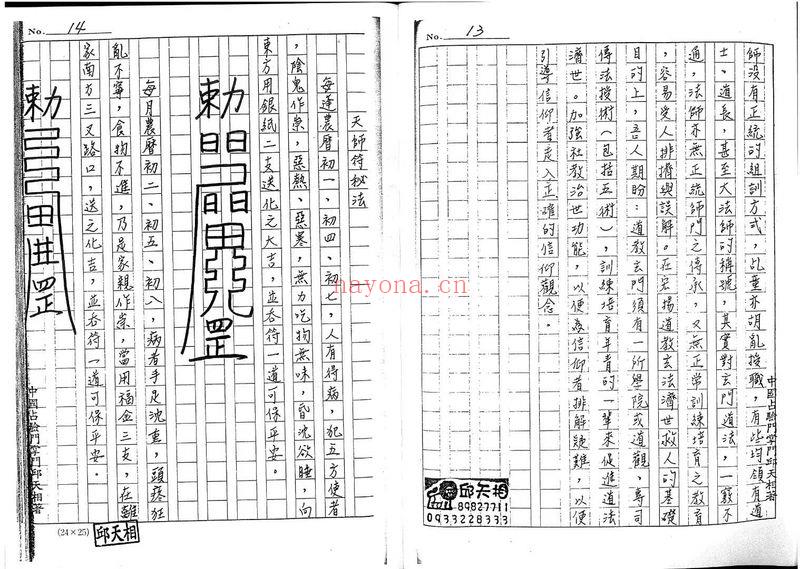 No. 13
師沒有正統的組訓方式，乩童亦胡亂授職，有些均領有道
士、道長，甚至大法師的稱號，其實對玄門道法，一竅不
通，法師亦無正統師門之傳承，又無正常訓練培育之教育
，容易受人排擠與誤解。在宏揚道教玄法濟世救人的基礎
目的上，吾人期盼：道教玄門須有一所學院或道觀，專司
傳法授術（包括五術），訓練培育年青的一輩來促進道法
濟世。加強社教治世功能，以便為信仰者排解疑難，以便
引導信仰者走入正確的信仰觀念。
中國占驗門掌門邱天相著
邱天相
89827711
0933228333
No. 14
天師符秘法
每逢農曆初一、初四、初七，人有得病，犯五方使者
，陰鬼作祟，惡熱、惡寒，無力吃物無味，昏沈欲睡，向
東方用銀紙二支送化之大吉，並吞符一道可保平安。
勅
罡
每月農曆初二、初五、初八，病者手足沈重，頭疼狂
亂不寧，食物不進，乃是家親作祟，當用福金三支，在離
家南方三叉路口，送之化吉，並吞符一道可保平安。
勅
罡
中國占驗門掌門邱天相著
(24×25)
邱天相
nayona.cn